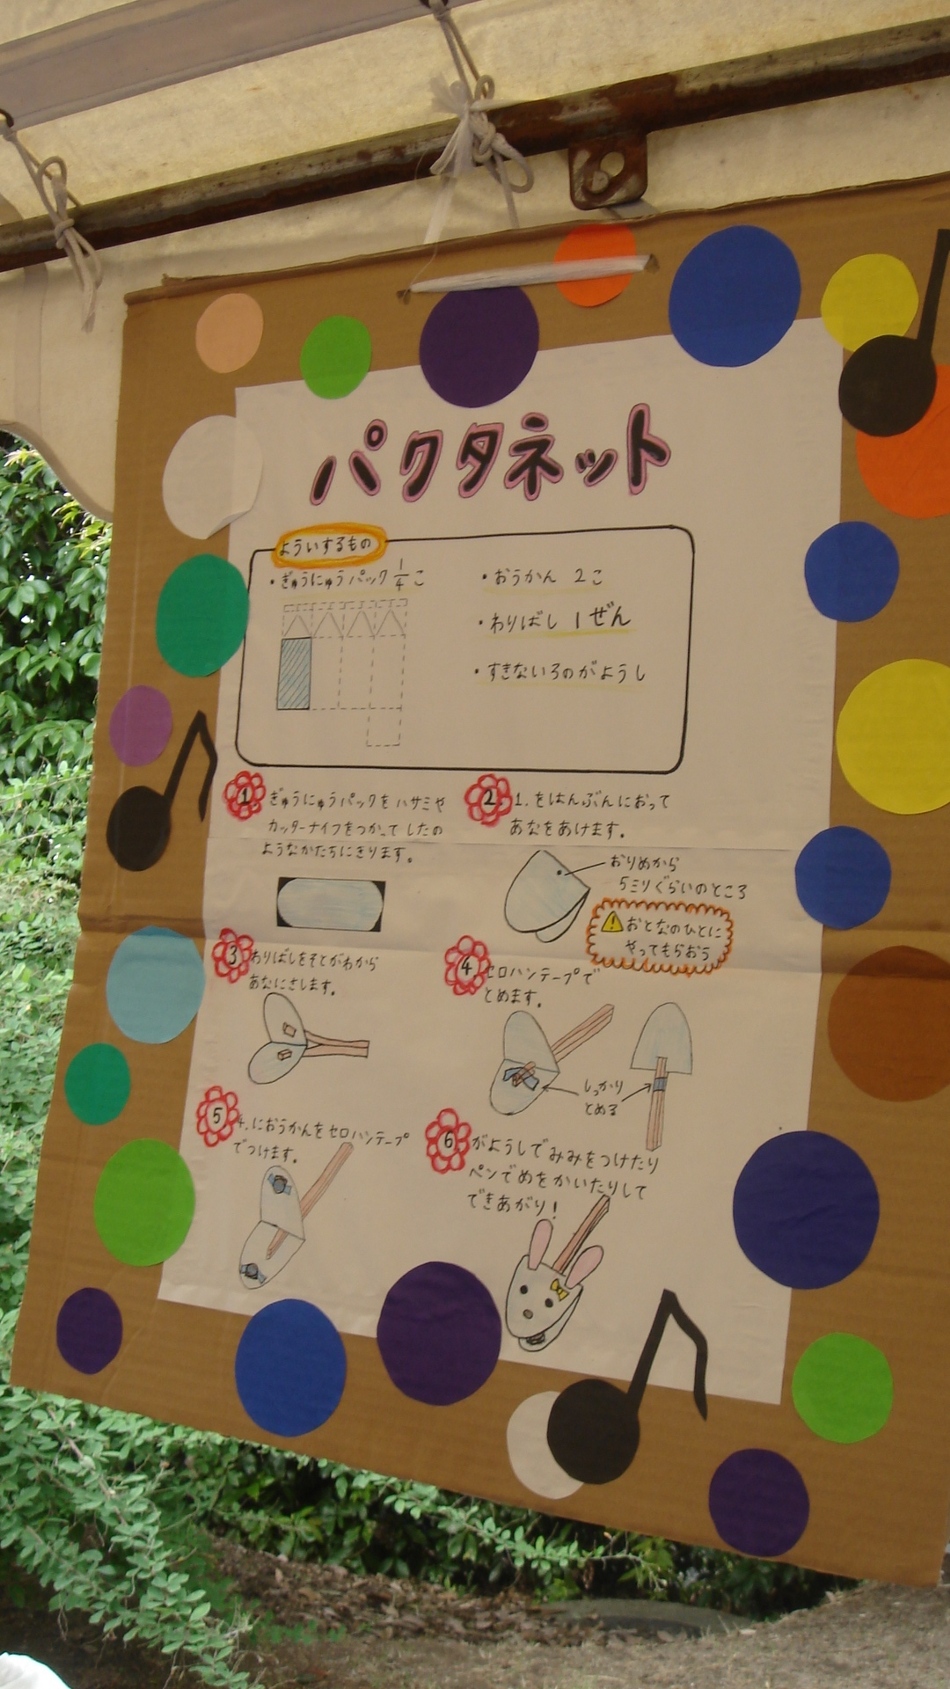 パクタネット
よういするもの
・ぎゅうにゅうパック 1/4 こ
・おうかん 2こ
・わりばし 1ぜん
・すきないろのがようし
1 ぎゅうにゅうパックを ハサミや
カッターナイフをつかって したの
ようなかたちにきります。
2 1.をはんぶんにおって
あなをあけます。
おりめから
5ミリぐらいのところ
おとなのひとに
やってもらおう
3 わりばしをそとがわから
あなにさします。
4 セロハンテープで
とめます。
しっかり
とめる
5 4.におうかんをセロハンテープ
でつけます。
6 がようしでみみをつけたり
ペンでめをかいたりして
できあがり!